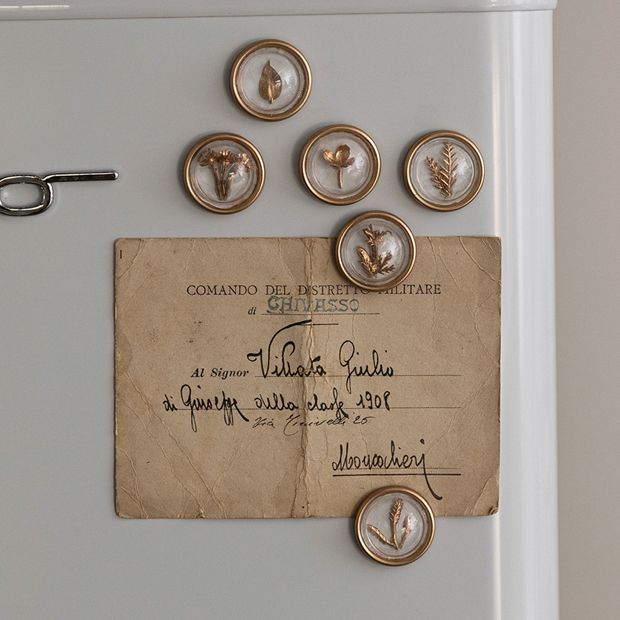 COMANDO DEL DISTRETTO MILITARE
di CHIVASSO
Al Signor Villata Giulio
di Giuseppe della classe 1908
Via 26
Moncalieri